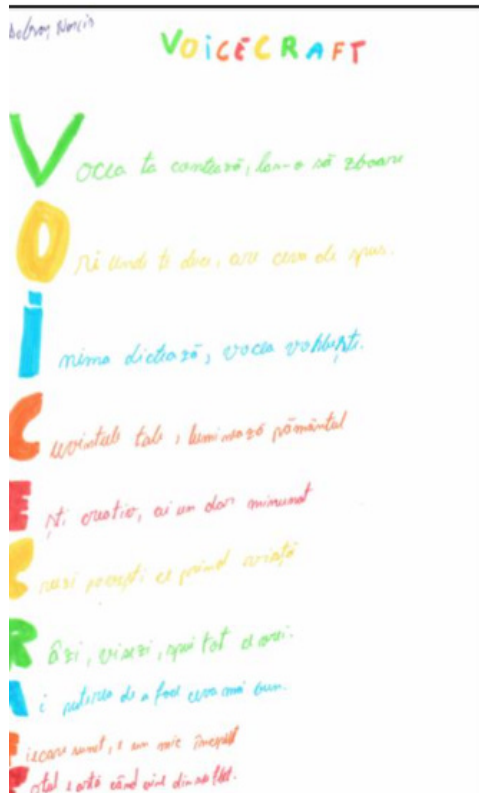 VOICECRAFT
Vocea ta contează, las-o să zboare
Ori unde te duce, are ceva de spus.
Inima dictează, vocea vorbește.
Cuvintele tale, luminează pământul
Ești creativ, ai un dar minunat
povești ce prind viață
Râzi, visezi, spui tot ce vrei.
Ai puterea de a face ceva mai bun.
Fiecare sunet, e un mic început
Totul e artă când vine din suflet.